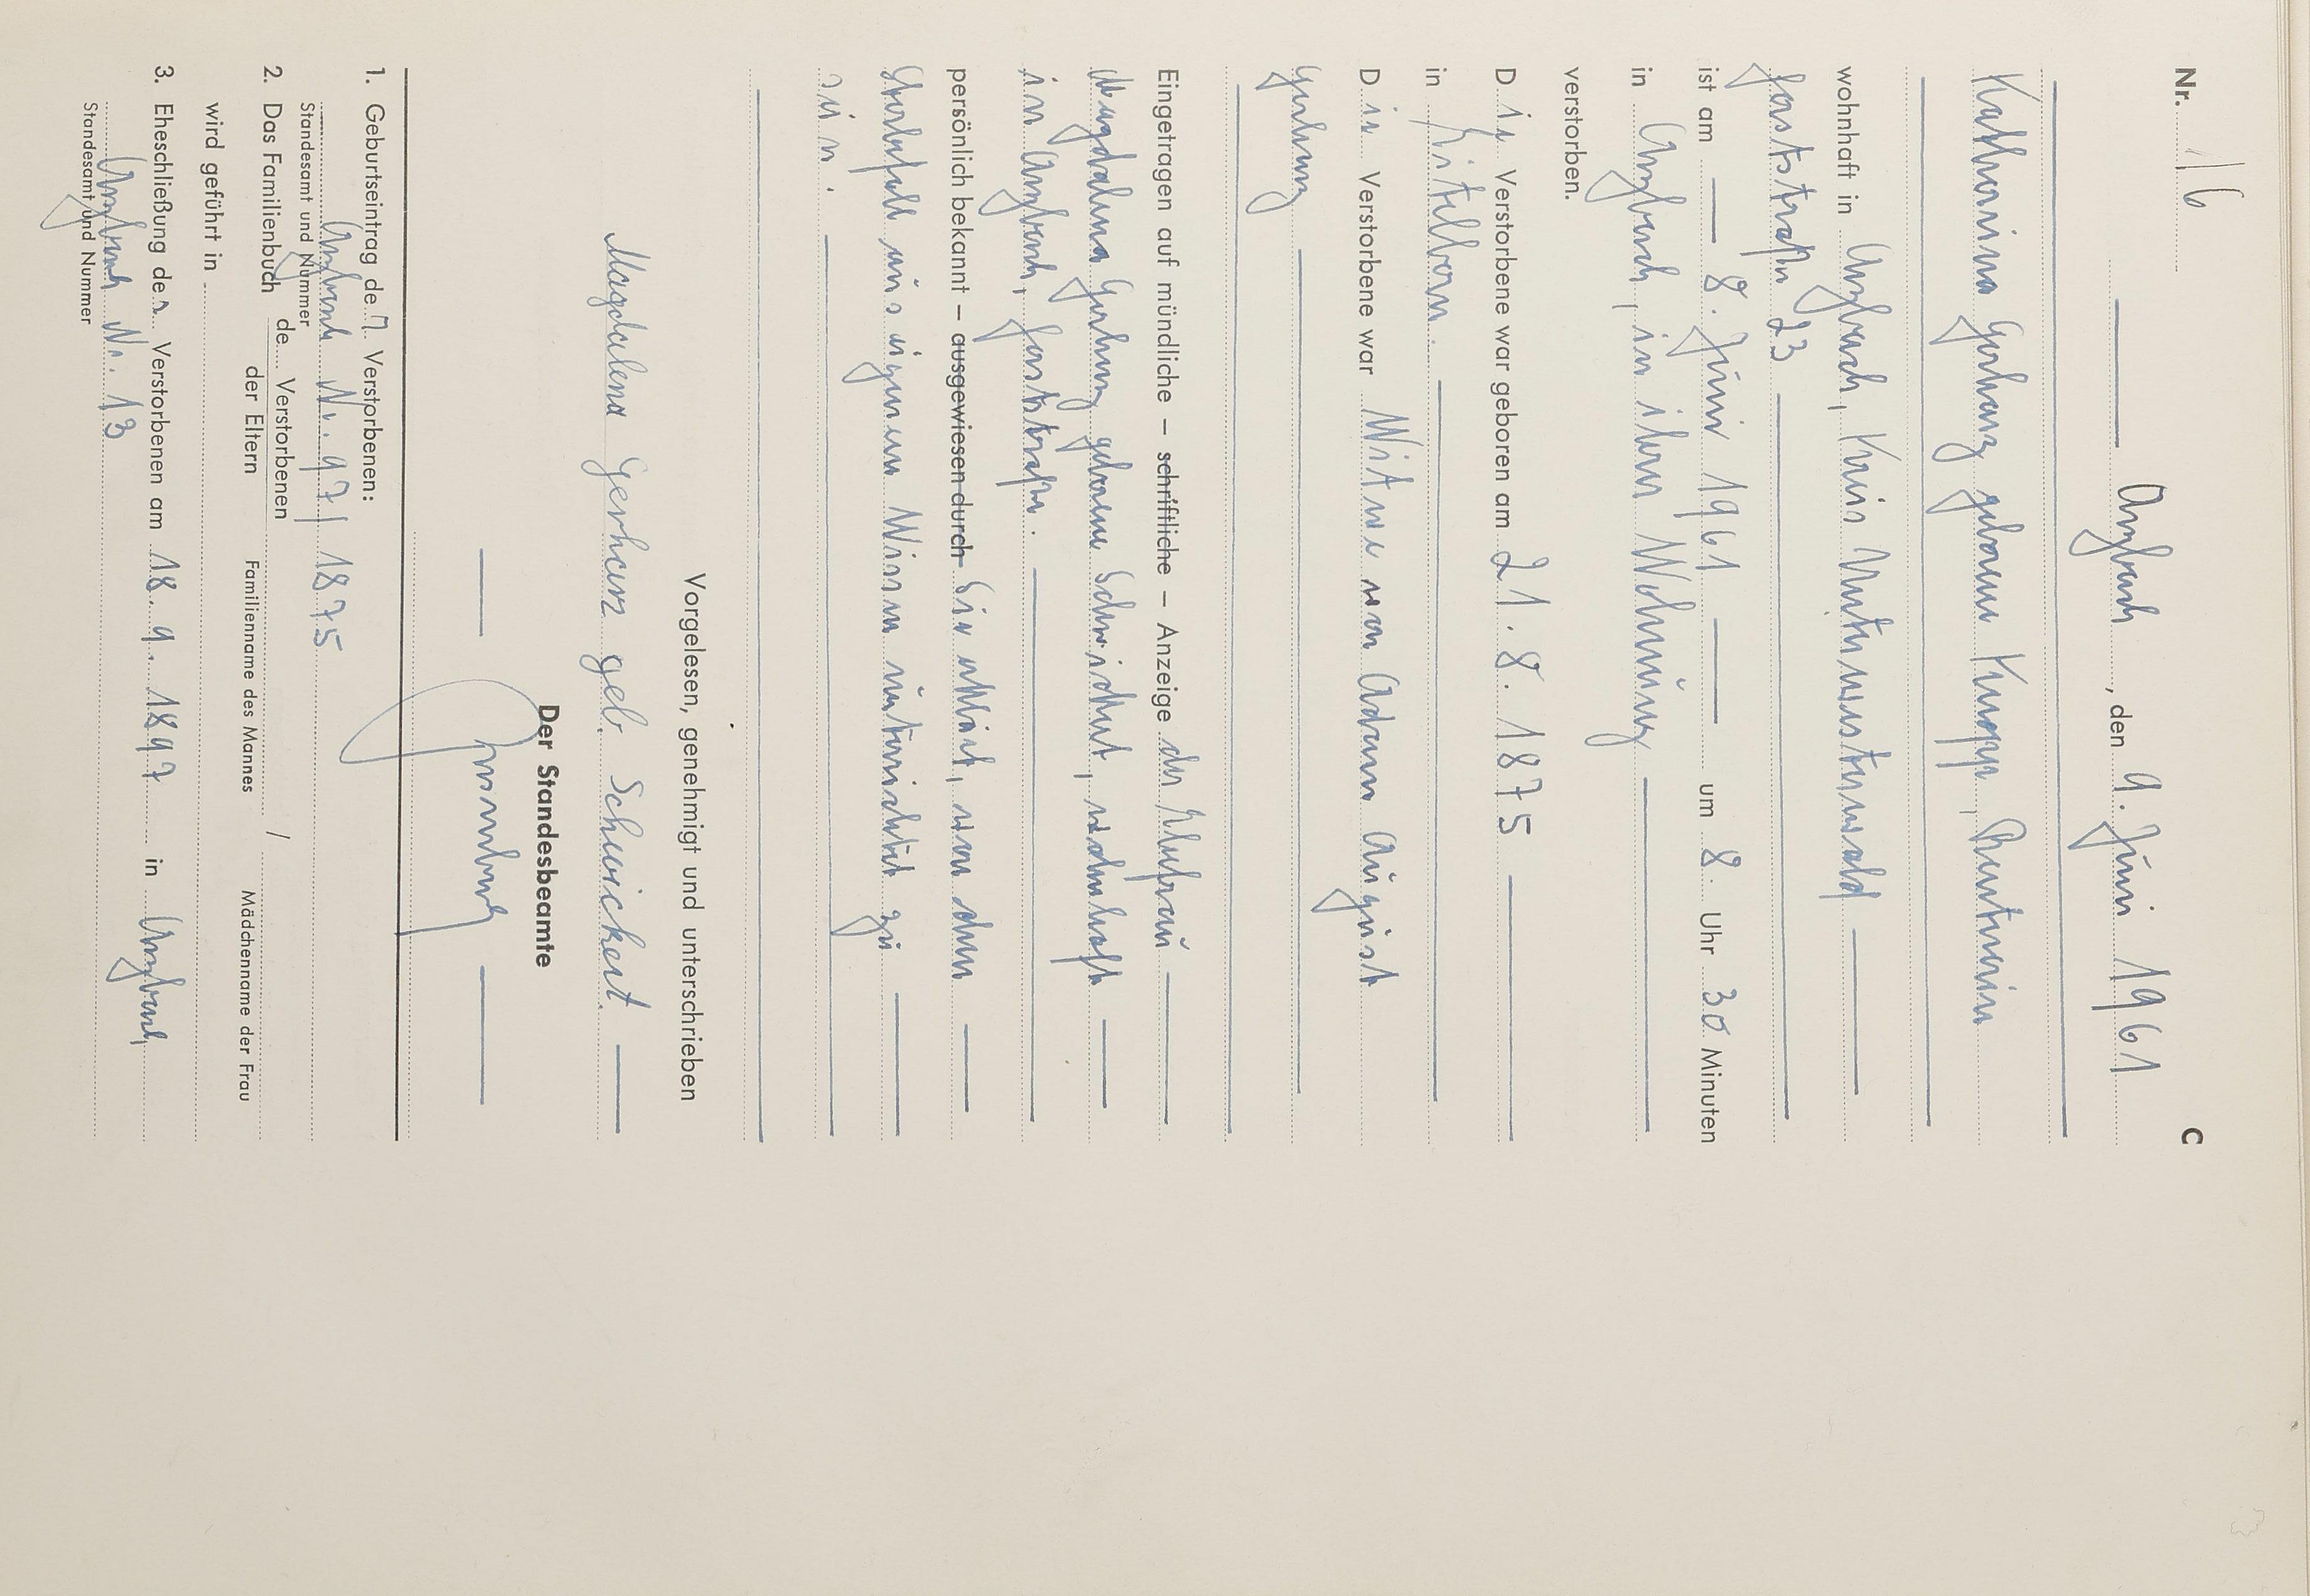 Nr. 16 C
Arzbach, den 9. Juni 1961
Katharina Gerharz geborene Knopp, Rentnerin
wohnhaft in Arzbach, Kreis Unterwesterwald
Forststraße 23
ist am 8. Juni 1961 um 8 Uhr 30 Minuten
in Arzbach, in ihrer Wohnung
verstorben.
Die Verstorbene war geboren am 21. 8. 1875
in
Die Verstorbene war Witwe von Adam August
Gerharz
Eingetragen auf mündliche – schriftliche – Anzeige der Ehefrau
Magdalena Gerharz geborene Schwickert, wohnhaft
in Arzbach, Forststraße.
persönlich bekannt – ausgewiesen durch Sie erklärt, von dem
Sterbefall aus eigenem Wissen unterrichtet zu
sein.
Vorgelesen, genehmigt und unterschrieben
Magdalena Gerharz geb. Schwickert.
Der Standesbeamte
1. Geburtseintrag der Verstorbenen:
Arzbach Nr. 97/1875
Standesamt und Nummer
2. Das Familienbuch de Verstorbenen /
der Eltern Familienname des Mannes Mädchenname der Frau
wird geführt in
3. Eheschließung der Verstorbenen am 18. 9. 1897 in Arzbach
Arzbach Nr. 13
Standesamt und Nummer